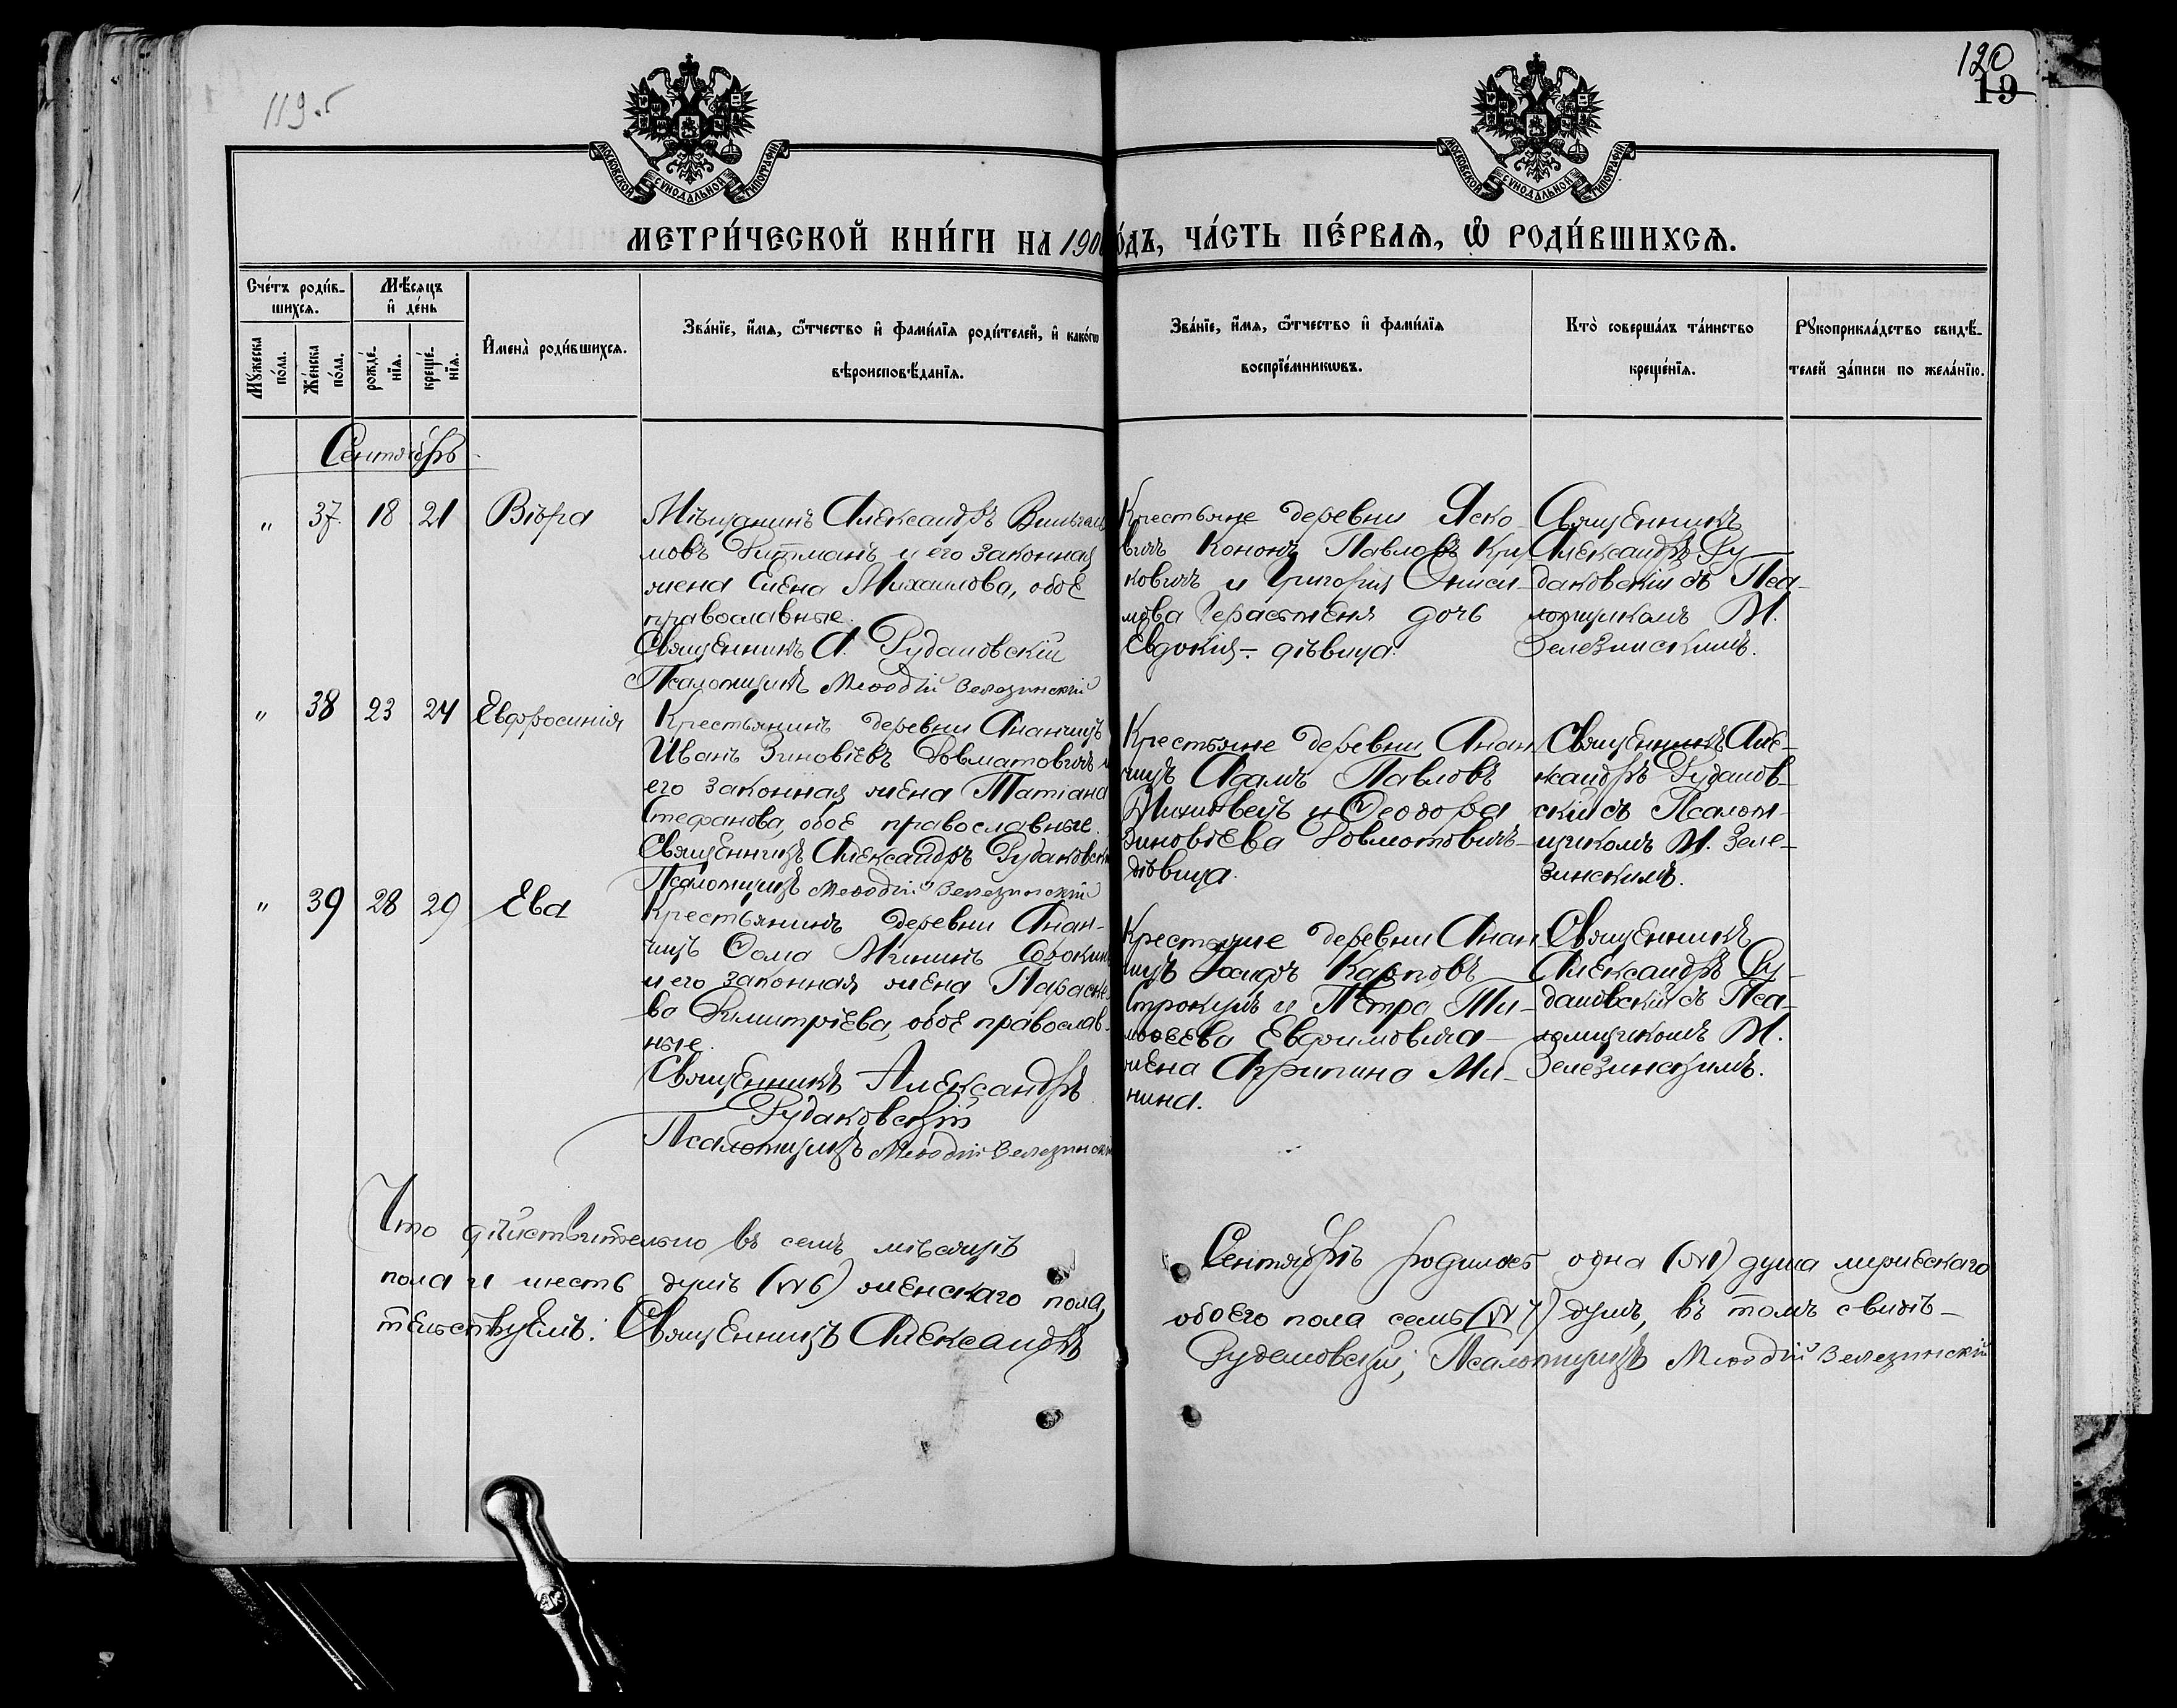 119.
120
19
МОСКОВСКОЙ СѴНОДАЛЬНОЙ ТИПОГРАФІИ
МОСКОВСКОЙ СѴНОДАЛЬНОЙ ТИПОГРАФІИ
МЕТРИ́ЧЕСКОЙ КНИ́ГИ НА 190 О́ДЪ, ЧА́СТЬ ПЕ́РВАѦ, Ѽ РОДИ́ВШИХСѦ.
Сче́тъ роди́в-
шихсѧ.
Мꙋ́жеска по́ла.
Же́нска по́ла.
Мѣ́сѧцъ
и҆ де́нь
рожде́-нїѧ.
креще́-нїѧ.
И҆мена̀ роди́вшихсѧ.
Зва́нїе, и҆́мѧ, ѻ҆́тчество и҆ фами́лїѧ роди́телей, и҆ како́гѡ
вѣроисповѣ́данїѧ.
Зва́нїе, и҆́мѧ, ѻ҆́тчество и҆ фами́лїѧ
воспрїе́мникѡвъ.
Кто̀ соверша́лъ та́инство
креще́нїѧ.
Рꙋкоприкла́дство свидѣ́-
телей за́писи по жела́нїю.
Сентябрь
" 37 18 21 Вѣра
Мѣщанинъ Александръ Вильгель
мовъ Гитманъ и его законная
жена Елена Михаилова, обое
православные.
Священникъ А. Рудаковскій
Псаломщикъ Меѳодій Зелезинскій
Крестьяне деревни Яско-
вичъ Кононъ Павловъ Кру
ковичъ и Григорія Ониси-
мова Герасименя дочь
Евдокія - дѣвица.
Священникъ
Александръ Ру-
даковскій съ Пса-
ломщикомъ М.
Зелезинскимъ.
" 38 23 24 Евфросинія
Крестьянинъ деревни Ананчицъ
Иванъ Зиновіевъ Довматовичъ и
его законная жена Татіана
Стефанова, обое православные.
Священникъ Александръ Рудаковскій
Псаломщикъ Меѳодій Зелезинскій
Крестьяне деревни Анан
чицъ Адамъ Павловъ
и Ѳеодора
Зиновіева Довматовичъ -
дѣвица.
Священникъ Але-
ксандръ Рудаков-
скій съ Псалом-
щикомъ М. Зеле-
зинскимъ.
" 39 28 29 Ева
Крестьянинъ деревни Анан-
чицъ Ѳома Мининъ
и его законная жена Параске
ва Димитріева, обое православ-
ные.
Священникъ Александръ
Рудаковскій
Псаломщикъ Меѳодій Зелезинскій
Крестьяне деревни Анан-
чицъ Карповъ
и Петра Ти-
моѳеева Евфимовича -
жена Агрипина Ми-
нина.
Священникъ
Александръ Ру-
даковскій съ Пса-
ломщикомъ М.
Зелезинскимъ.
Что дѣйствительно въ семъ мѣсяцѣ Сентябрѣ родилось одна (№1) душа мужескаго
пола и шесть душъ (№6) женскаго пола, обоего пола семь (№7) душъ, въ томъ свидѣ-
тельствуемъ: Священникъ Александръ Рудаковскій, Псаломщикъ Меѳодій Зелезинскій